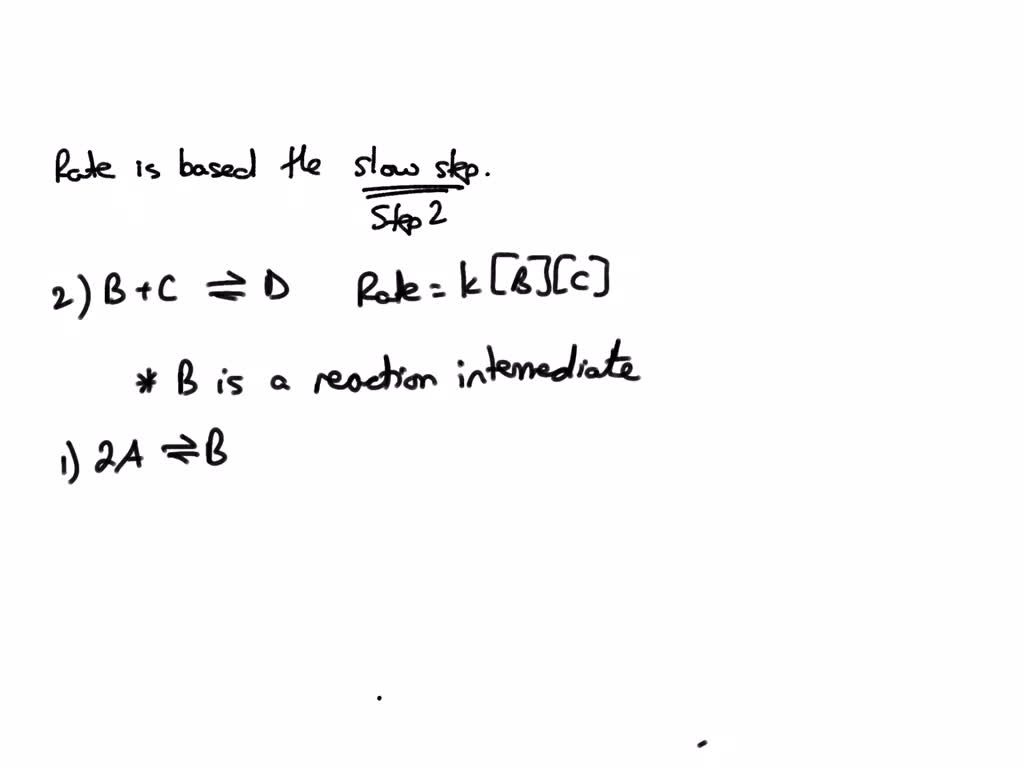 Rate is based the slow step.
Step 2
2) B + C ⇌ D Rate = k [B][C]
* B is a reaction intermediate
1) 2A ⇌ B